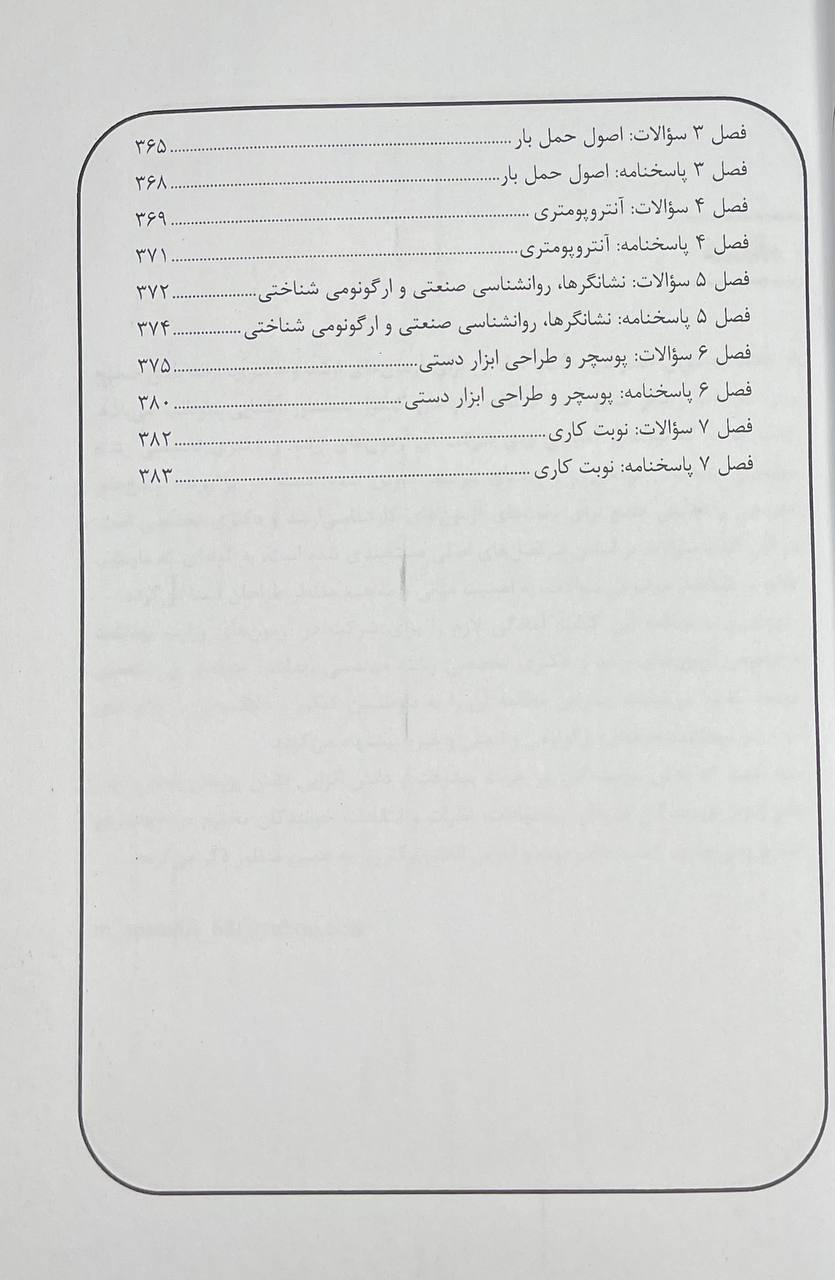 فصل ۳ سؤالات: اصول حمل بار ................ ۳۶۵
فصل ۳ پاسخنامه: اصول حمل بار ................ ۳۶۸
فصل ۴ سؤالات: آنتروپومتری ................ ۳۶۹
فصل ۴ پاسخنامه: آنتروپومتری ................ ۳۷۱
فصل ۵ سؤالات: نشانگرها، روانشناسی صنعتی و ارگونومی شناختی ................ ۳۷۲
فصل ۵ پاسخنامه: نشانگرها، روانشناسی صنعتی و ارگونومی شناختی ................ ۳۷۴
فصل ۶ سؤالات: پوسچر و طراحی ابزار دستی ................ ۳۷۵
فصل ۶ پاسخنامه: پوسچر و طراحی ابزار دستی ................ ۳۸۰
فصل ۷ سؤالات: نوبت کاری ................ ۳۸۲
فصل ۷ پاسخنامه: نوبت کاری ................ ۳۸۳